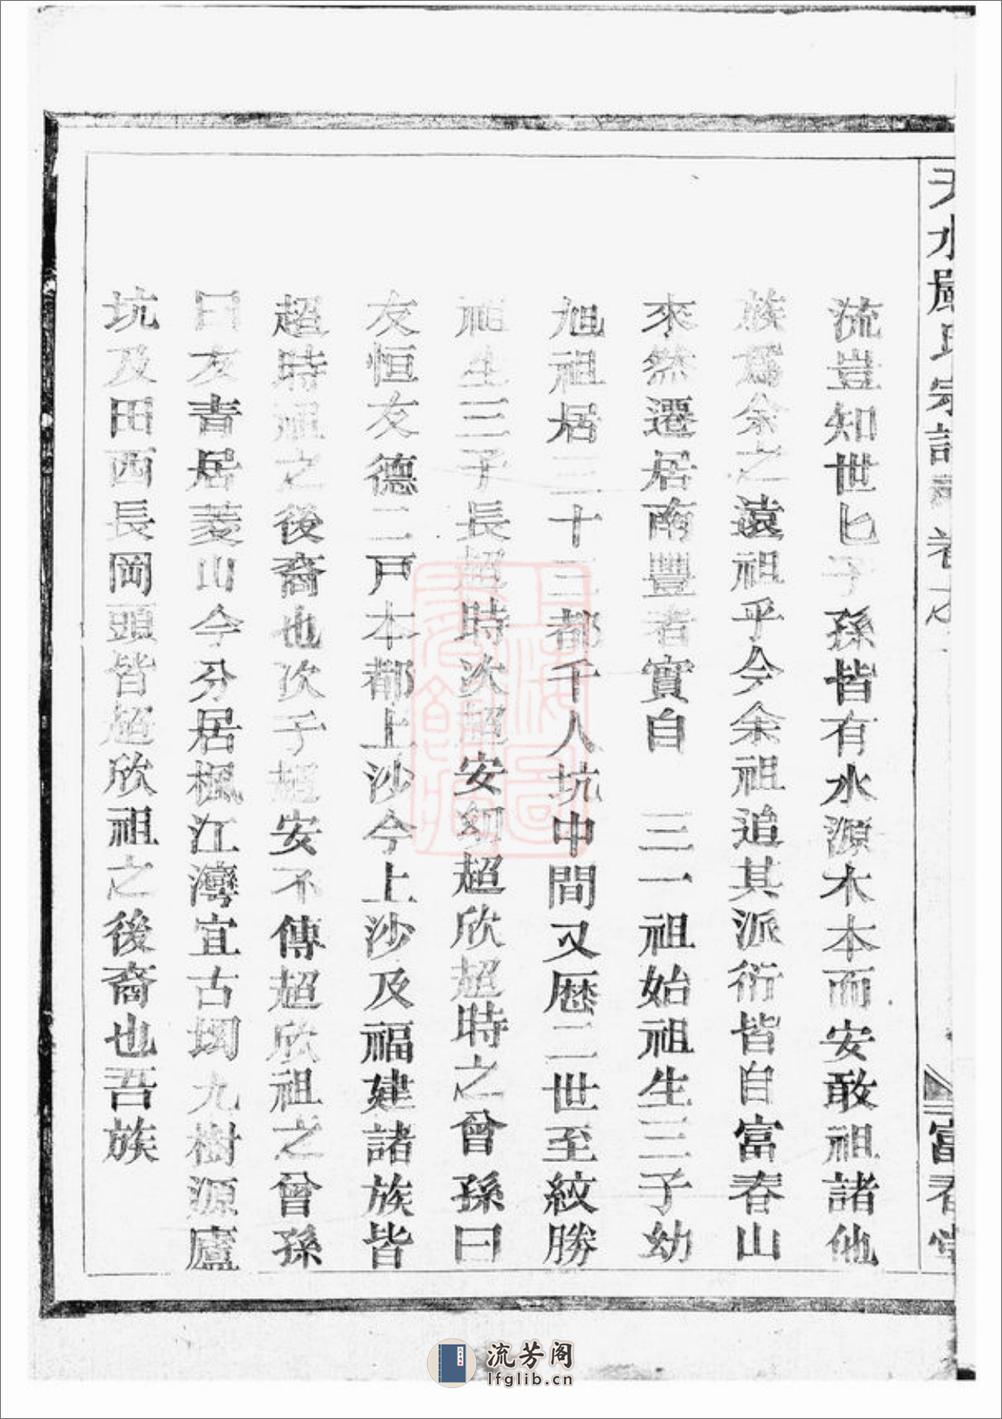 天水嚴氏宗譜 卷之
富春堂
流豈知世匕子孫皆有水源木本而安敢祖諸他
族爲余之遠祖乎今余祖追其派衍皆自富春山
來然遷居南豐者實自 三一祖始祖生三子幼
旭祖居三十三都千人坑中間又歴二世至紋勝
祖生三子長超時次超安幼超欣超時之曾孫曰
友恒友德二戸本都上沙今上沙及福建諸族皆
超時祖之後裔也次子超安不傳超欣祖之曾孫
曰友青居菱山今分居楓江灣宜古㘰九樹源廬
坑及田西長岡頭皆超欣祖之後裔也吾族
流芳阁
lfglib.cn